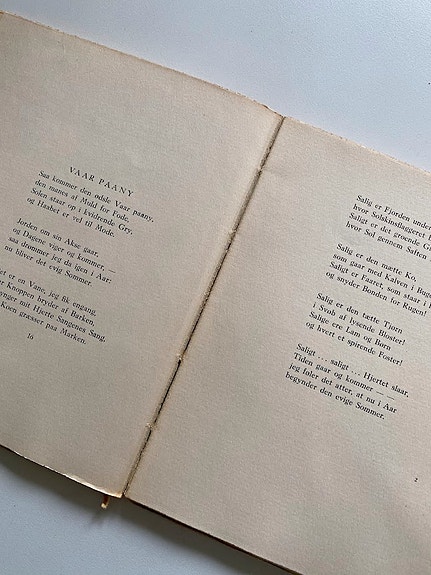 VAAR PAANY
Saa kommer den ødsle Vaar paany,
den manes af Muld for Fode,
Solen staar op i kvidrende Gry,
og Haabet er vel til Mode.
Jorden om sin Akse gaar,
og Dagene viger og kommer, —
saa drømmer jeg da igen i Aar:
nu bliver det evig Sommer.
et er en Vane, jeg fik engang,
Knoppen bryder af Barken,
ynger mit Hjerte Sangenes Sang,
Koen græsser paa Marken.
16
Salig er Fjorden under
hvor Solskinsflaggeret
Saligt er det groende
hvor Sol gennem Saften
Salig er den mætte Ko,
som gaar med Kalven i Bugen
Saligt er Faaret, som staar i
og snyder Bonden for Rugen!
Salig er den tætte Tjørn
i Svøb af lysende Bloster!
Salige ere Lam og Børn
og hvert et spirende Foster!
Saligt ... saligt ... Hjertet slaar,
Tiden gaar og kommer — —
jeg føler det atter, at nu i Aar
begynder den evige Sommer.
2